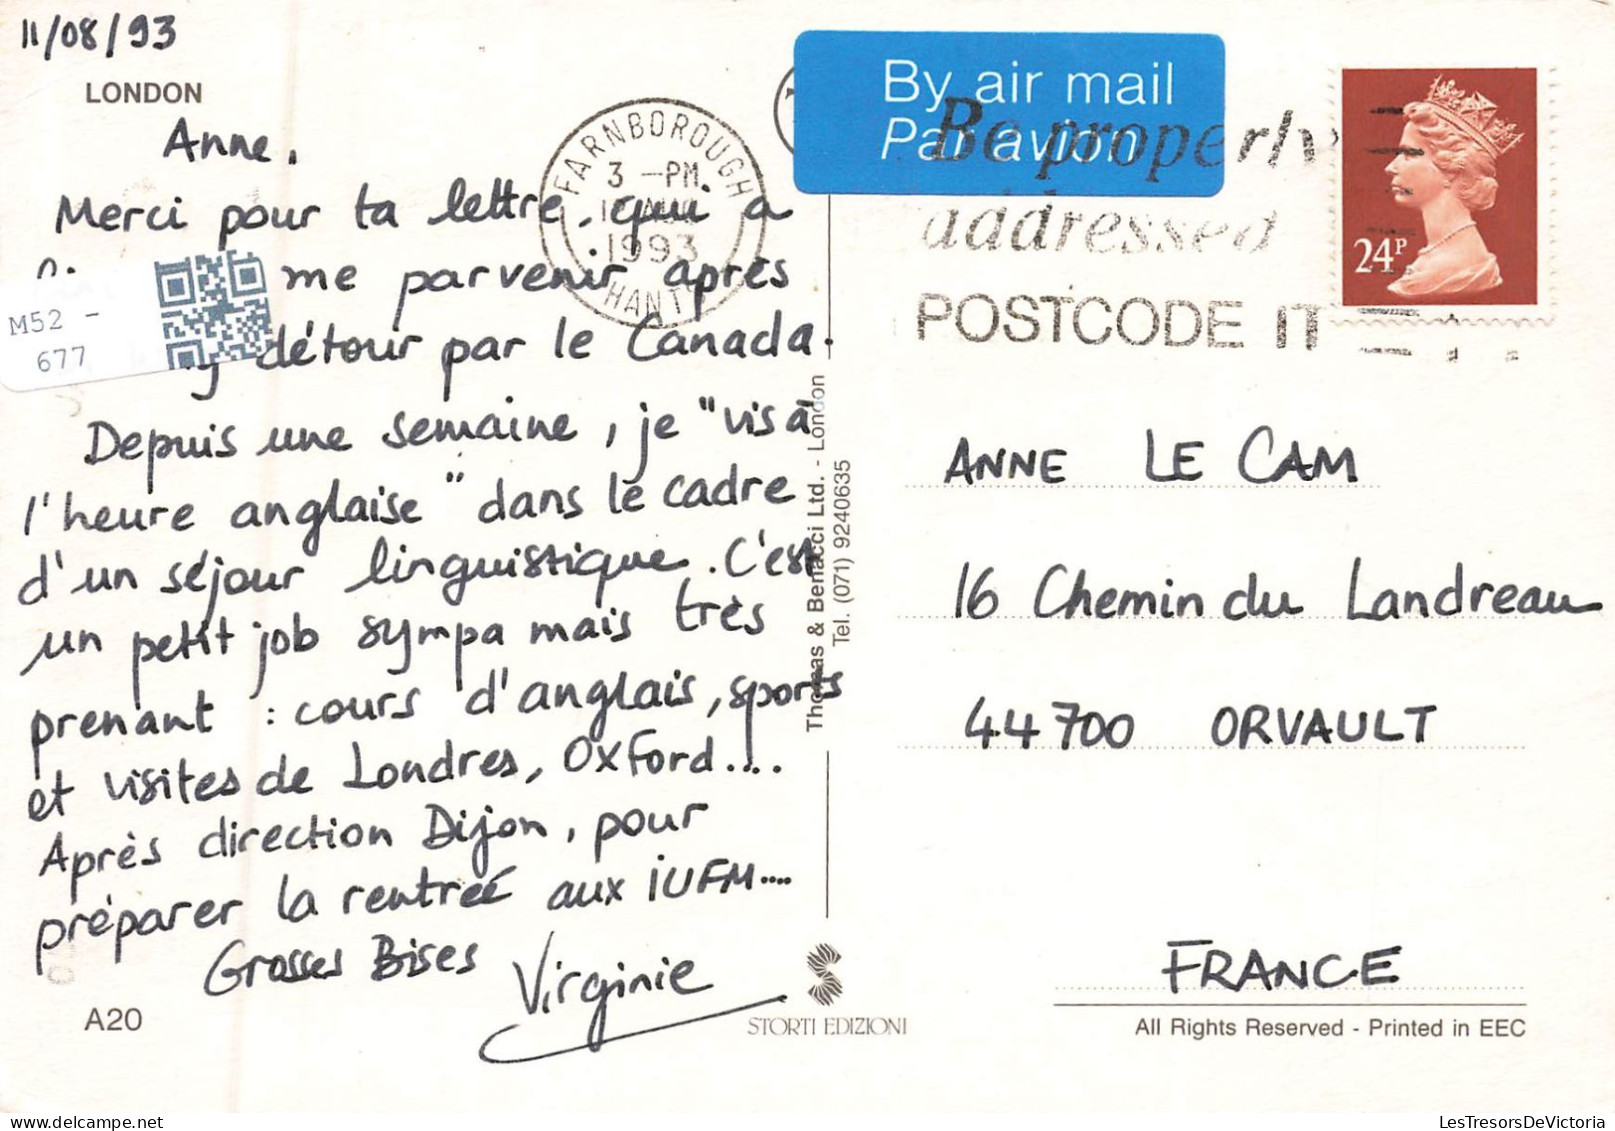 11/08/93
LONDON
Anne,
Merci pour ta lettre, qui a
me parvenir après
détour par le Canada.
Depuis une semaine, je "vis à
l'heure anglaise" dans le cadre
d'un séjour linguistique. C'est
un petit job sympa mais très
prenant : cours d'anglais, sports
et visites de Londres, Oxford....
Après direction Dijon, pour
préparer la rentrée aux IUFM....
Grosses Bises
Virginie
A20
M52 -
677
FARNBOROUGH
3 -PM
1993
HANTS
By air mail
Par avion
Be properly
addressed
POSTCODE IT
24P
Thomas & Benacci Ltd. - London
Tel. (071) 9240635
ANNE LE CAM
16 Chemin du Landreau
44700 ORVAULT
FRANCE
STORTI EDIZIONI
All Rights Reserved - Printed in EEC
LesTresorsDeVictoria.com